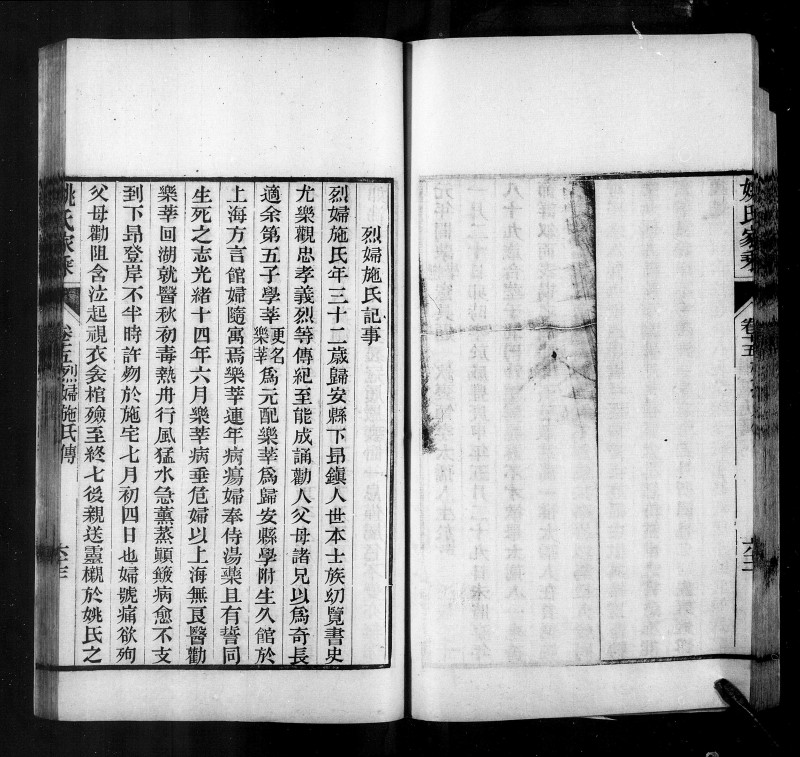 姚氏家乘
卷十五
六二
烈婦施氏記事
烈婦施氏年三十二歲歸安縣下昂鎮人世本士族幼覽書史
尤樂觀忠孝義烈等傳紀至能成誦勸人父母諸兄以爲奇長
適余第五子學莘更名樂莘爲元配樂莘爲歸安縣學附生久館於
上海方言館婦隨寓焉樂莘連年病瘍婦奉侍湯藥且有誓同
生死之志光緒十四年六月樂莘病垂危婦以上海無良醫勸
樂莘回湖就醫秋初毒熱舟行風猛水急薰蒸顛簸病愈不支
到下昂登岸不半時許歾於施宅七月初四日也婦號痛欲殉
父母勸阻含泣起視衣衾棺殮至終七後親送靈櫬於姚氏之
姚氏家乘
卷十五烈婦施氏傳
六三